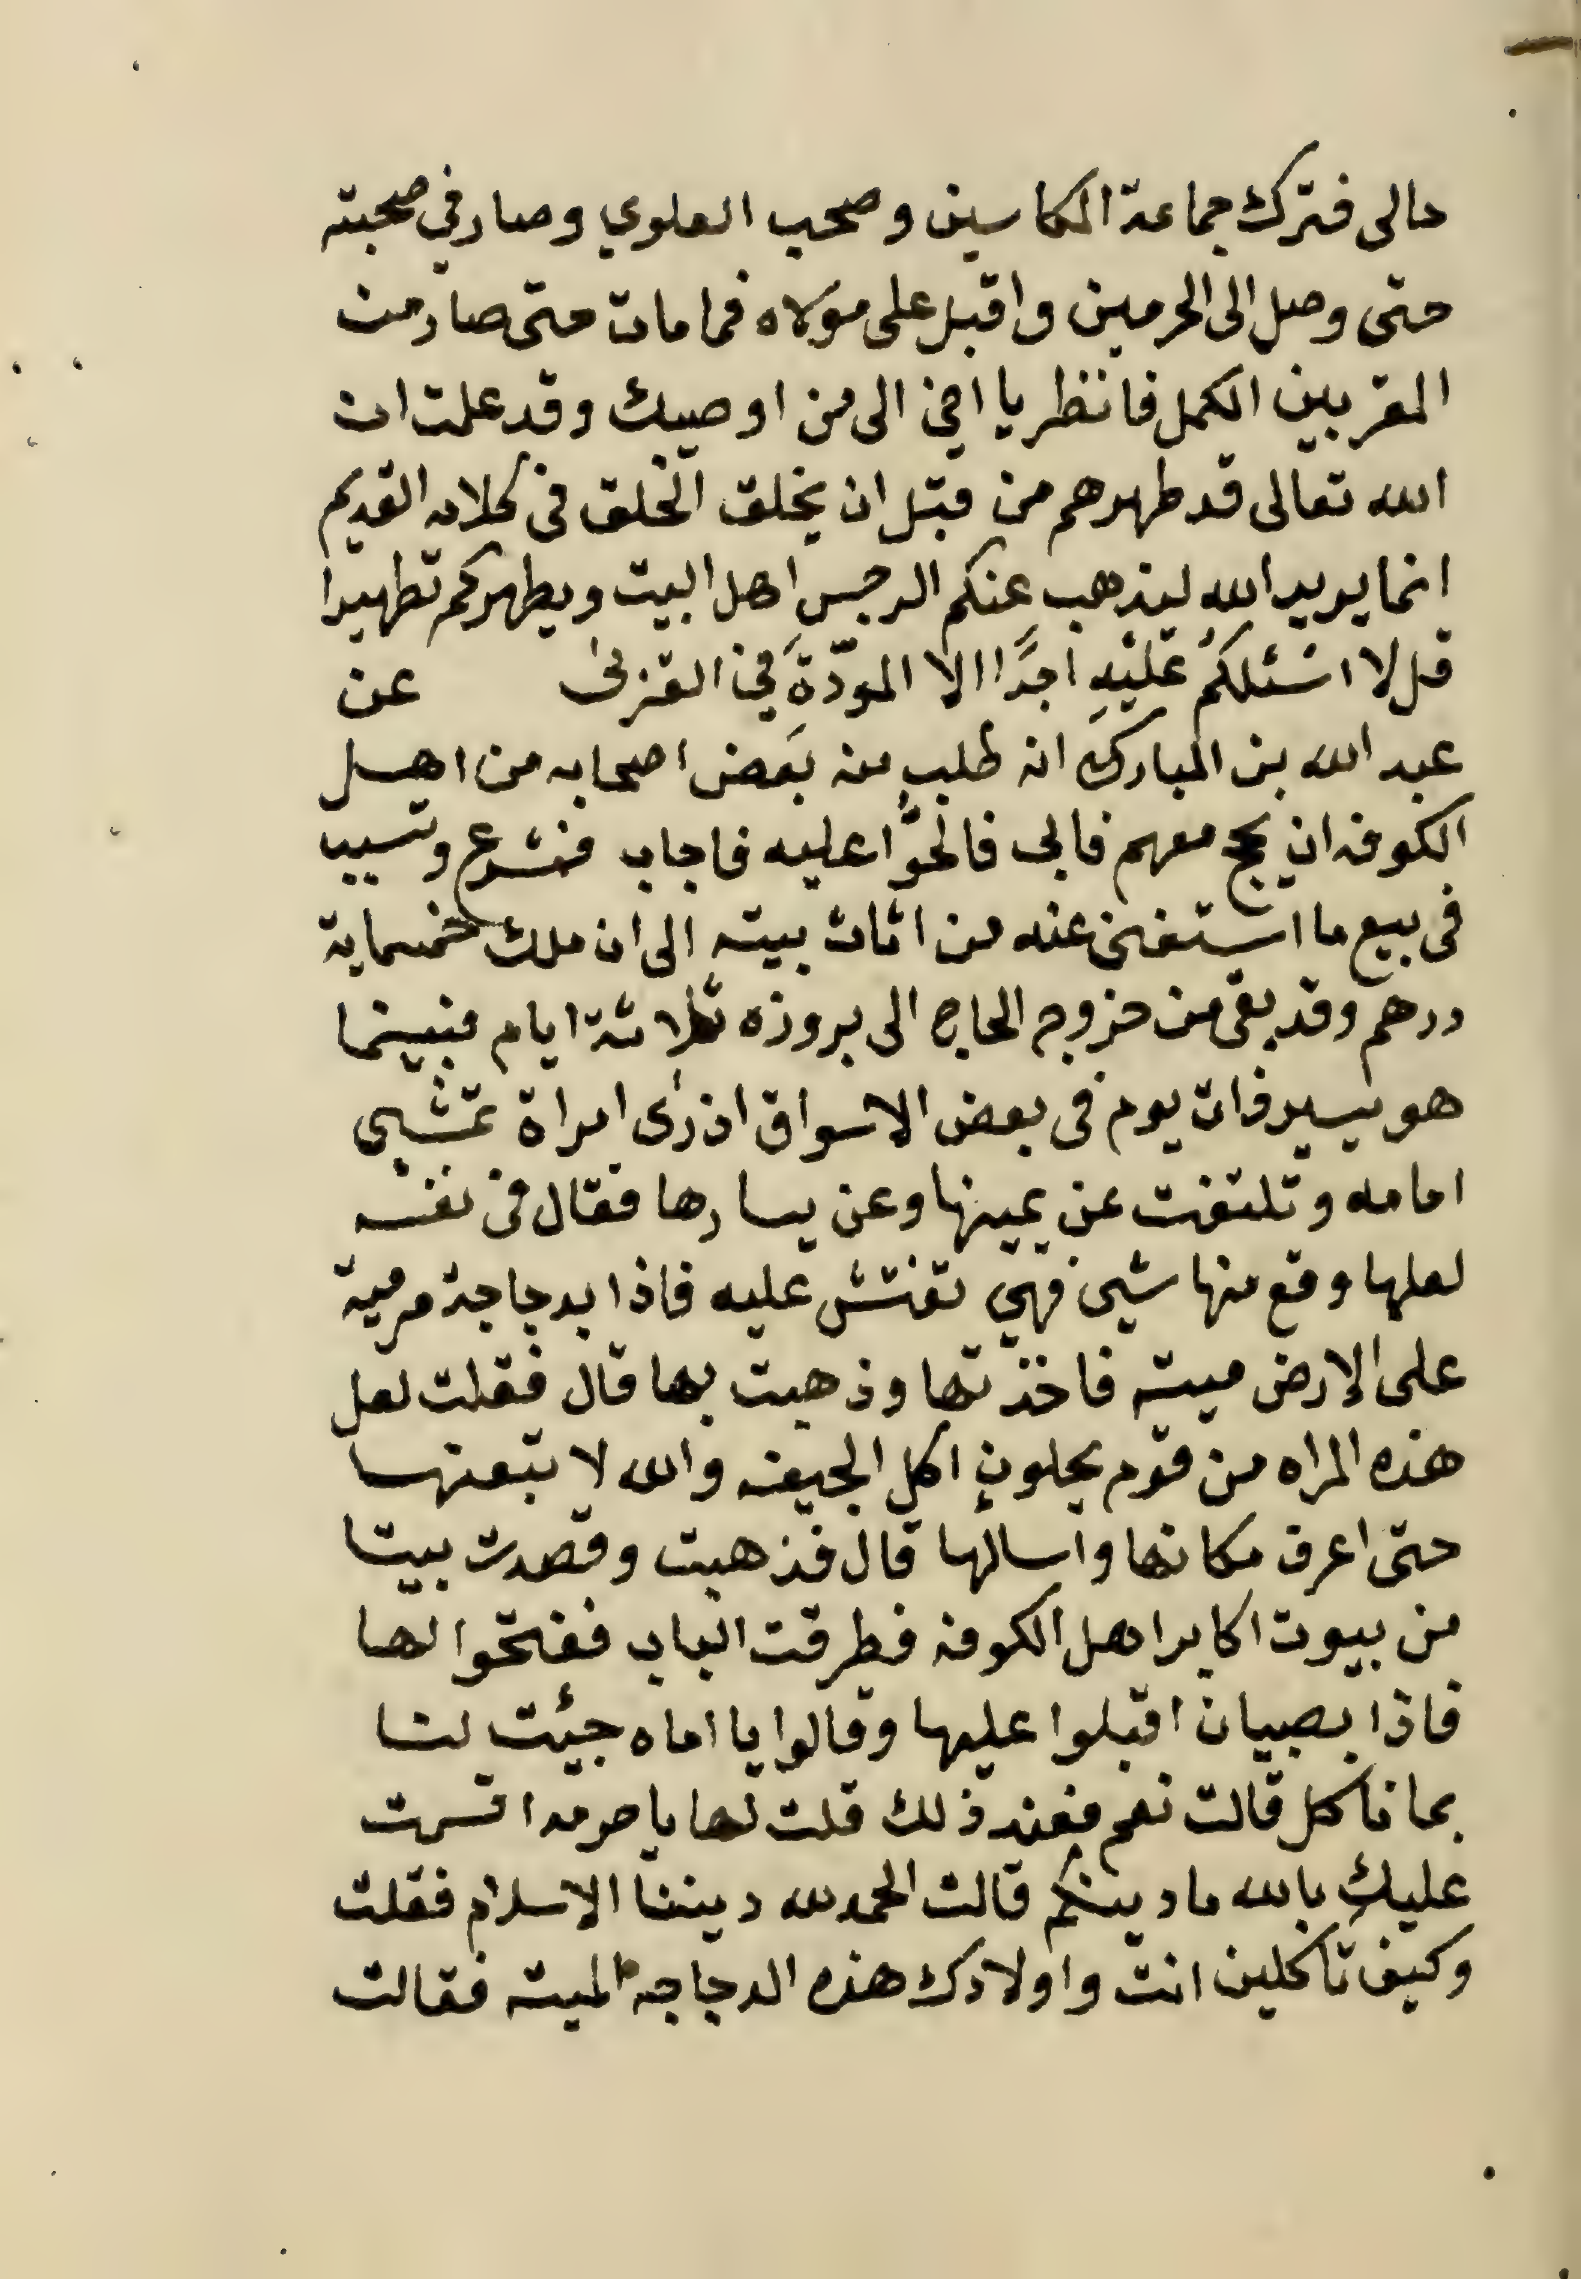 حالى فترك جماعة المكاسين وصحب العلوي وصار في صحبته
حتى وصل الى الحرمين واقبل على مولاه فما مات حتى صار من
المقربين الكمل فانظر يا اخي الى من اوصيك وقد علمت ان
الله تعالى قد طهرهم من قبل ان يخلق الخلق في كلامه القديم
انما يريد الله ليذهب عنكم الرجس اهل البيت ويطهركم تطهيرا
قل لا اسْئلكُمْ عَليْهِ اجرًا الا المودّةَ في القربىٰ عن
عبد الله بن المبارك انه طلب منه بعض اصحابه من اهل
الكوفه ان يحج معهم فابى فالحّوا عليه فاجاب فشرع وتسبب
في بيع ما استغنى عنه من اثاث بيته الى ان ملك خمسماية
درهم وقد بقى من خروج الحاج الى بروزه ثلاثة ايام فبينما
هو يسير ذات يوم في بعض الاسواق اذ رٰى امراة تمشى
امامه وتلتفت عن يمينها وعن يسارها فقال في نفسه
لعلها وقع منها شيى فهي تفتش عليه فاذا بدجاجة مرمية
على الارض ميته فاخذتها وذهبت بها قال فقلت لعل
هذه المراه من قوم يحلون اكل الجيفه والله لا تبعنها
حتى اعرف مكانها واسالها قال فذهبت وقصدت بيتا
من بيوت اكابر اهل الكوفه فطرقت الباب ففتحوا لها
فاذا بصبيان اقبلوا عليها وقالوا يا اماه جيئت لنا
بما ناكل قالت نعم فعند ذلك قلت لها يا حرمه اقسمت
عليكِ بالله ما دينكم قالت الحمد لله ديننا الاسلام فقلت
وكيف تأكلين انت واولادك هذه الدجاجه الميته فقالت